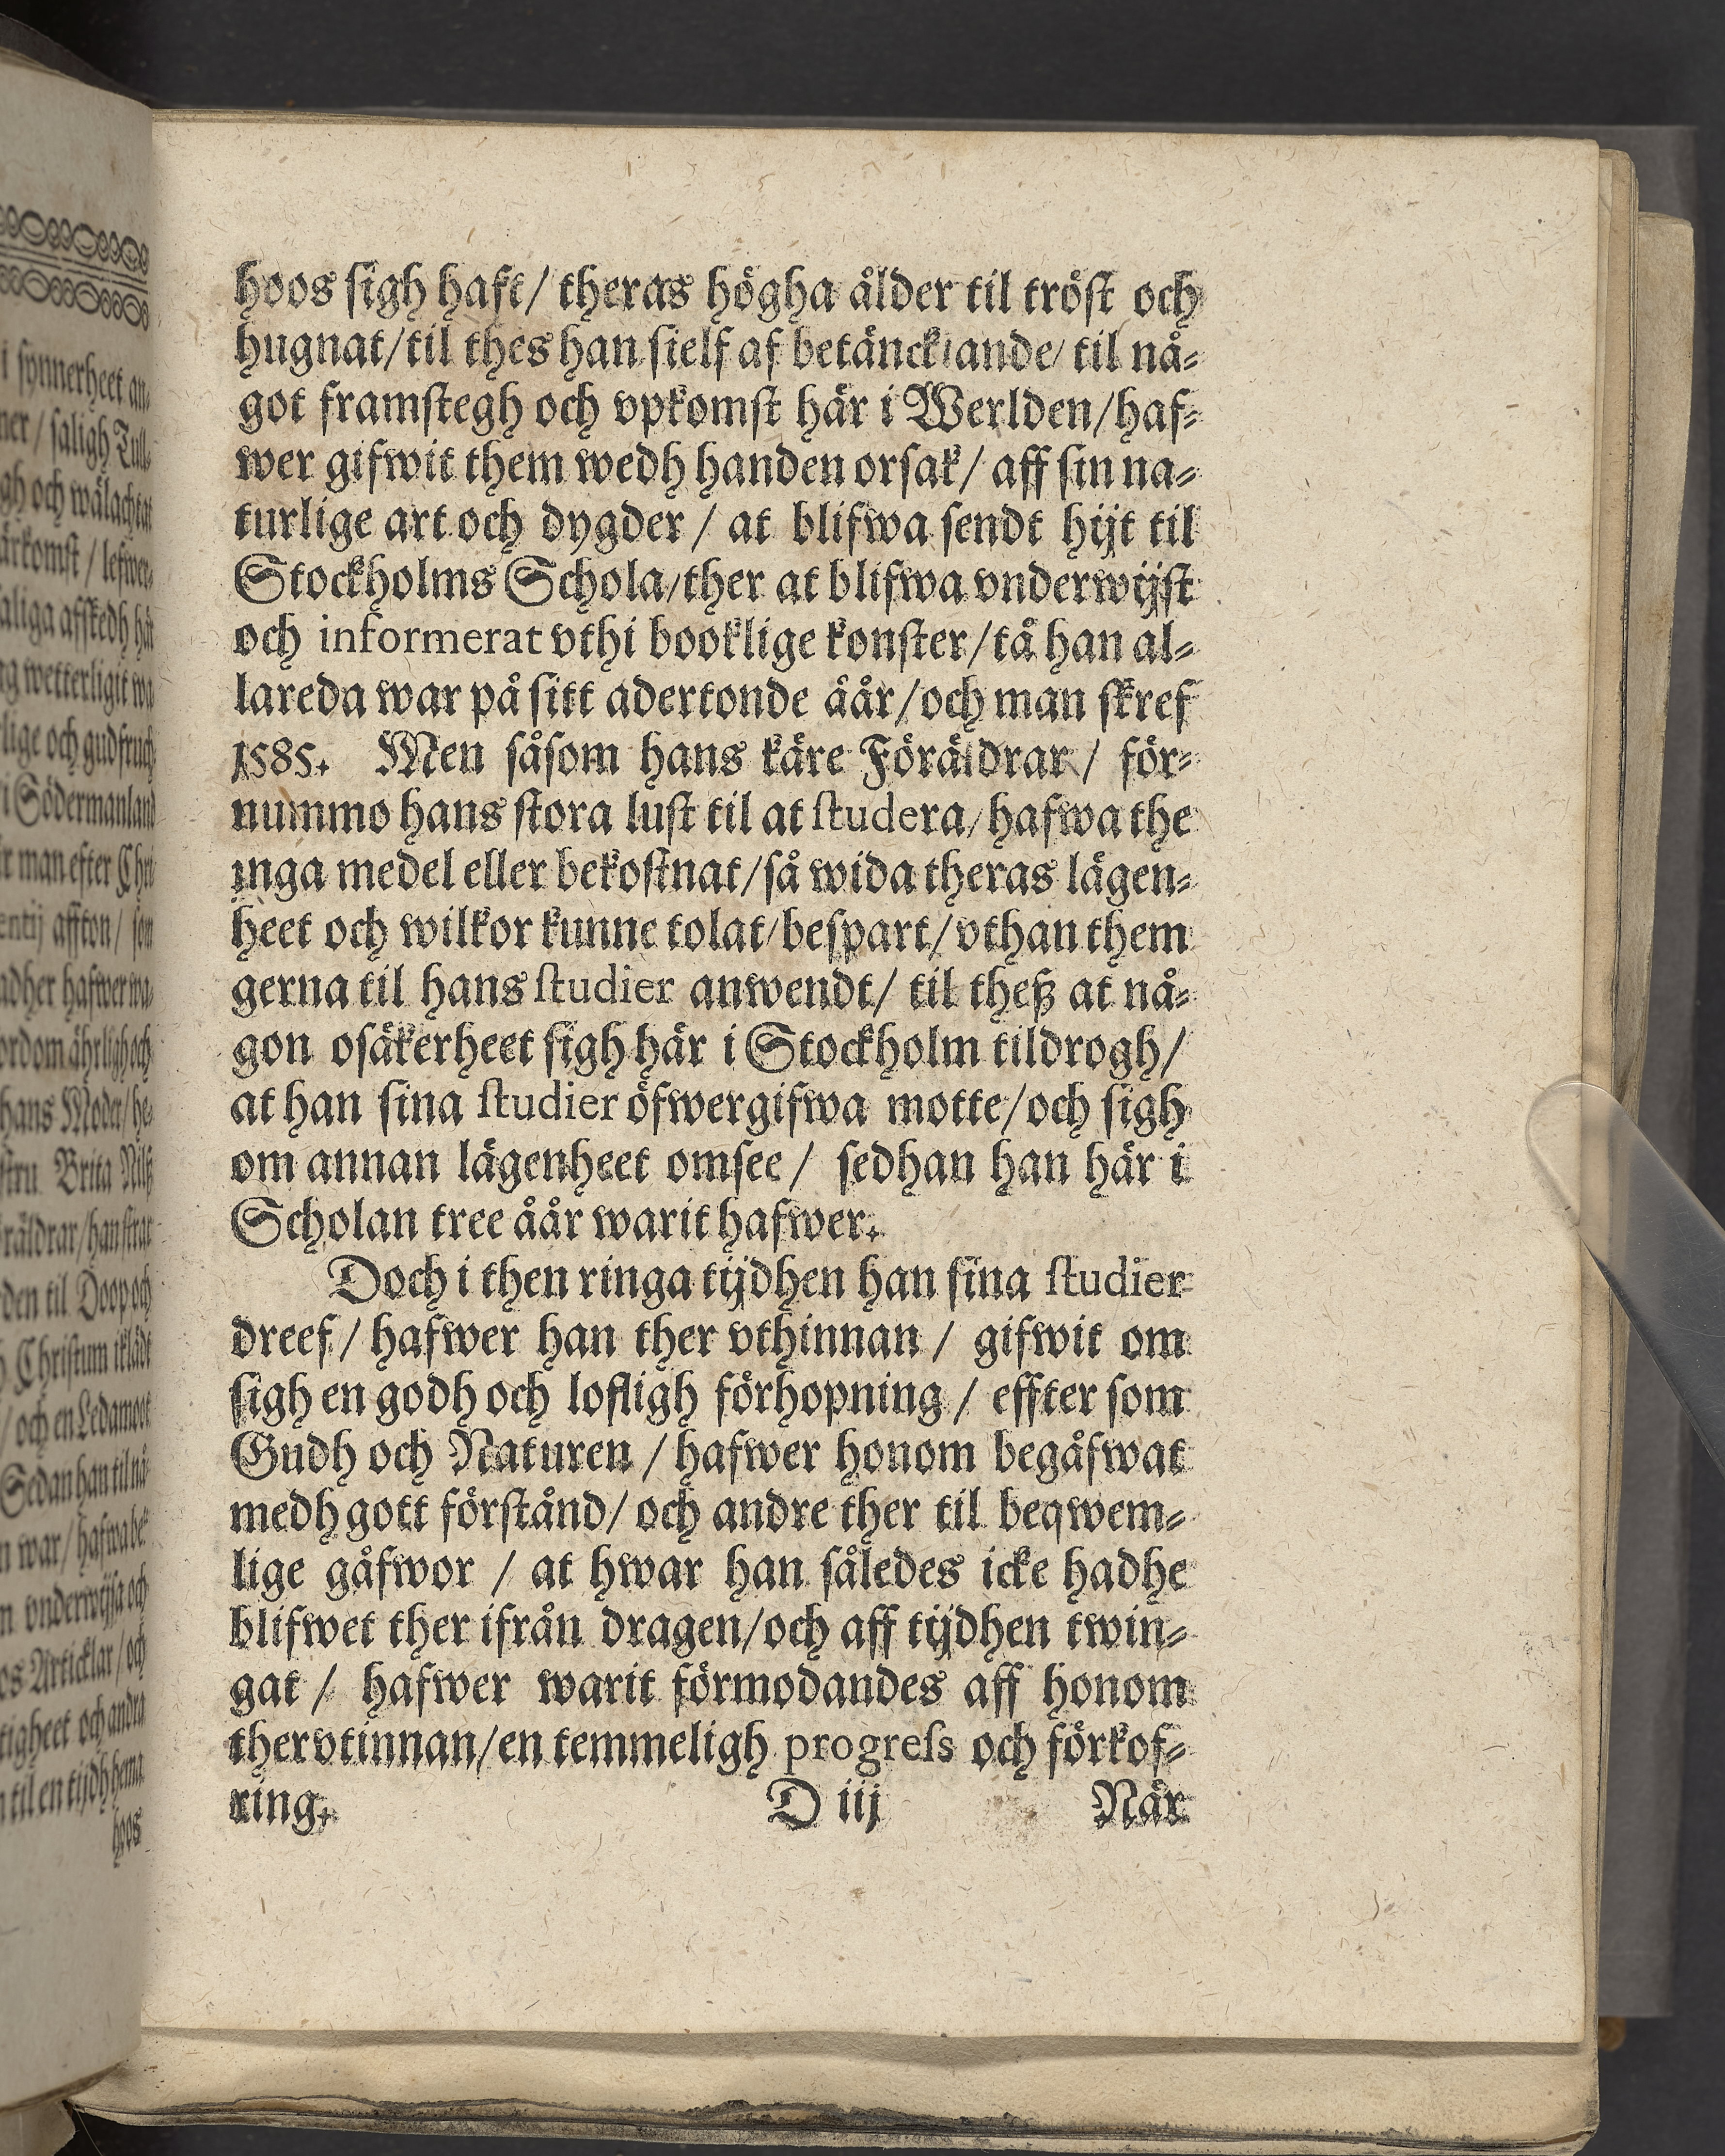 hoos sigh haft/ theras högha ålder til tröst och
hugnat/til thes han sielf af betänckiande/ til nå-
got framstegh och vpkomst här i Werlden/haf-
wer gifwit them wedh handen orsak/ aff sin na-
turlige art och dygder / at blifwa sendt hijt til
Stockholms Schola/ther at blifwa vnderwijst
och informerat vthi booklige konster/tå han al-
lareda war på sitt adertonde åår/och man skref
1585. Men såsom hans käre Föräldrar / för-
nummo hans stora lust til at studera/hafwa the
inga medel eller bekostnat/så wida theras lägen-
heet och wilkor kunne tolat/bespart/vthan them
gerna til hans studier anwendt/ til theß at nå-
gon osäkerheet sigh här i Stockholm tildrogh/
at han sina studier öfwergifwa motte/och sigh
om annan lägenheet omsee / sedhan han här i
Scholan tree åår warit hafwer.
Doch i then ringa tijdhen han sina studier
dreef/ hafwer han ther vthinnan / gifwit om
sigh en godh och lofligh förhopning / effter som
Gudh och Naturen / hafwer honom begåfwat
medh gott förstånd/ och andre ther til beqwem-
lige gåfwor / at hwar han således icke hadhe
blifwet ther ifrån dragen/och aff tijdhen twin-
gat / hafwer warit förmodandes aff honom
thervtinnan/en temmeligh progress och förkof-
ring. D iij När